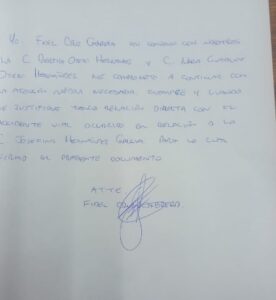 Yo, Fidel Cruz Guerra en conjunto con nuestros
la C. Bertha Otero Hernández y C. Nara Guadalupe
Otero Hernández me comprometo a continuar con
la atención médica necesaria, siempre y cuando
se justifique tenga relación directa con el
accidente vial ocurrido en relación a la
C Josefina Hernández Garcia. Para lo cual
firmad el presente documento.
ATTE
Fidel